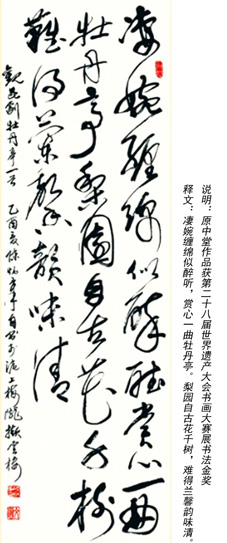 凄婉缠绵似醉听赏心一曲
牡丹亭梨园自古花千树
难得兰馨韵味清
观昆剧牡丹亭一首 乙酉
说明：原中堂作品获第二十八届世界遗产大会书画大赛展书法金奖
释文：凄婉缠绵似醉听，赏心一曲牡丹亭。梨园自古花千树，难得兰馨韵味清。